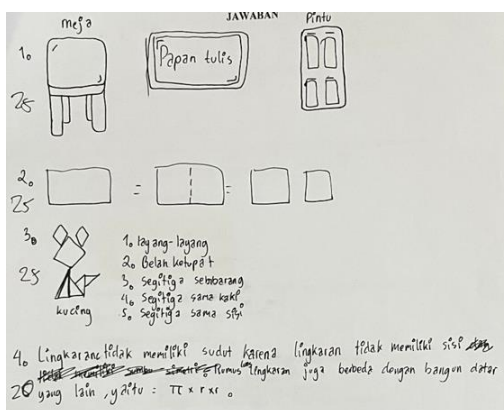 JAWABAN
meja
Pintu
1.
Papan tulis
25
2.
= =
25
3.
25
kucing
1. layang-layang
2. Belah Ketupat
3. Segitiga sembarang
4. Segitiga sama kaki
5. Segitiga sama sisi
4. Lingkaran tidak memiliki sudut karena lingkaran tidak memiliki sisi
Rumus lingkaran juga berbeda dengan bangun datar
20 yang lain, yaitu : π x r x r.